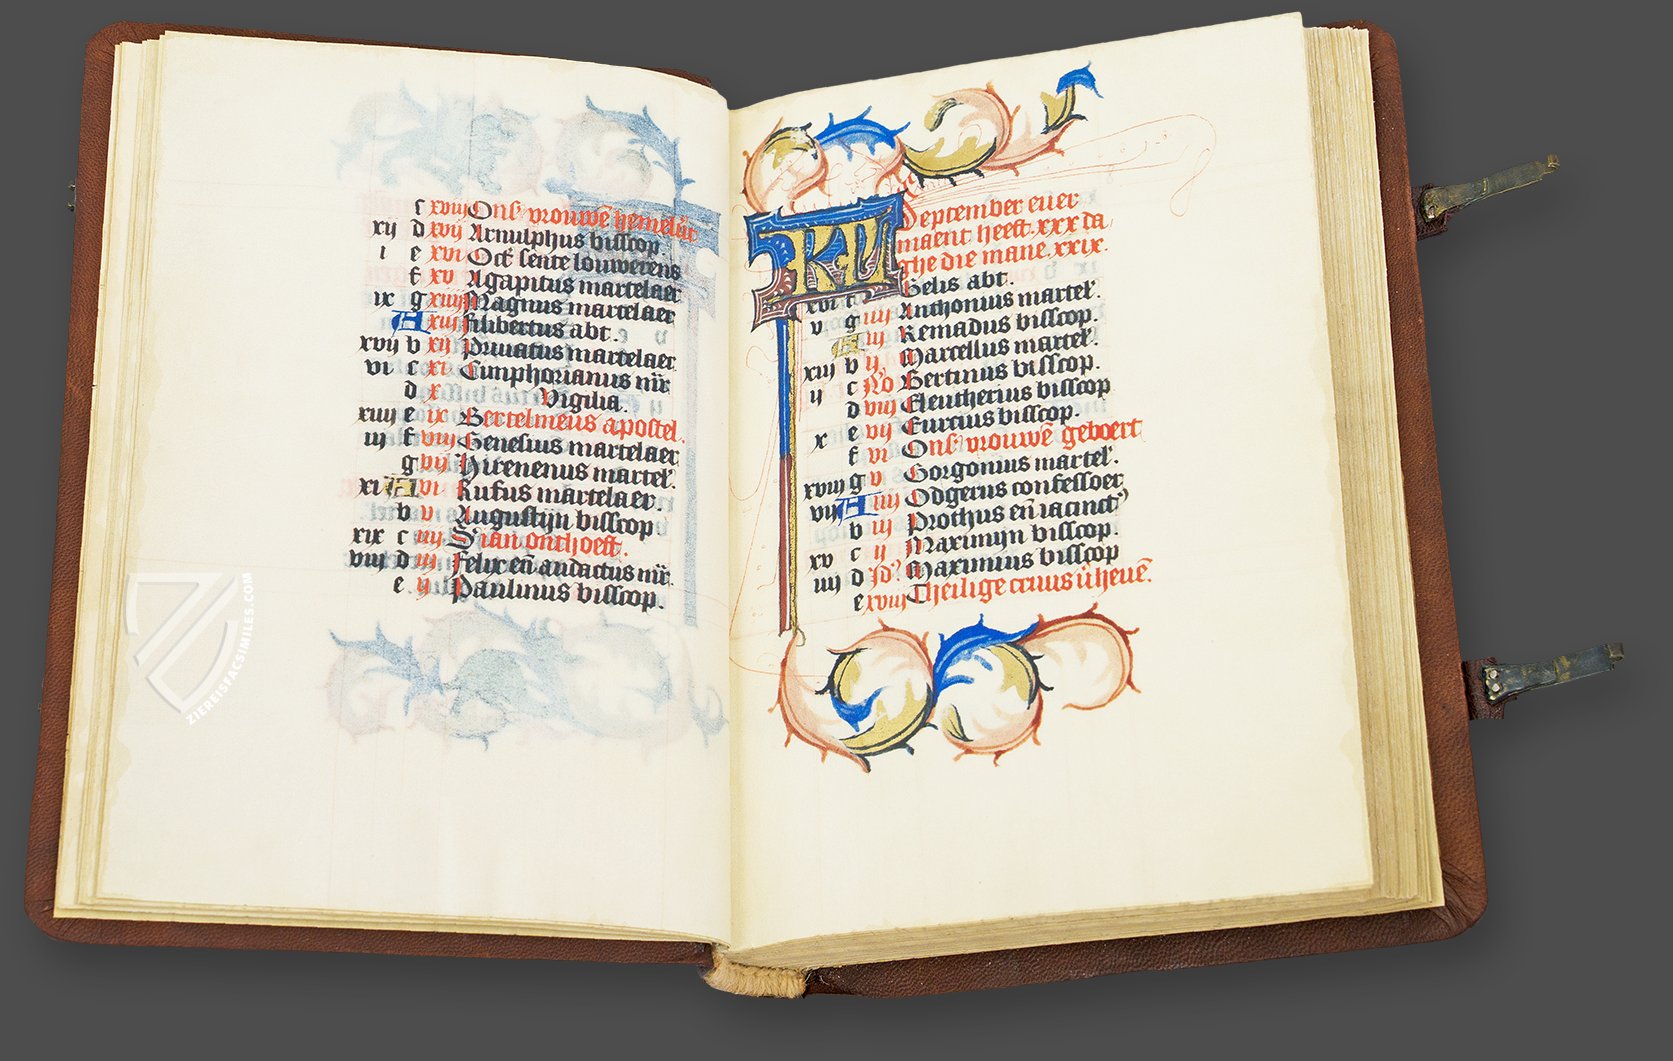 c xviij Ons vrouwē hemelūr
xij d xvij Arnulphus bisscop.
i e xvi Oct sente louwerens
f xv Agapitus martelaer
ix g xiiij Magnus martelaer
A xiij Filibertus abt.
xvij b xij Priuatus martelaer
vi c xi Timphorianus mr̄
d x Vigilia.
xiiij e ix Bertelmeus apostel.
iij f viij Genesius martelaer
g vij Hirenenus martel'.
xi A vi Rufus martelaer.
b v Augustijn bisscop
xix c iiij S ian onthoeft.
viij d iij Felix eñ audactus mr̄.
e ij Paulinus bisscop.
ZIEREISFACSIMILES.COM
KL September euer
maent heeft. xxx da
ghe die mane. xxix.
xvi f Gelis abt.
v g iiij Anthonius martel'.
A iij Remadus bisscop.
xiij b ij Marcellus martel'.
ij c No Bertinus bisscop.
d viij Eleutherius bisscop
x e vij Eurcius bisscop.
f vi Ons vrouwē geboert
xviij g v Gorgonius martel'.
vij A iiij Odgerus confessoer
b iij Prothus eñ iacinct'
xv c ij Maximijn bisscop.
iiij d Id' Maximus bisscop
e xviij Theilige cruus ūheuē.